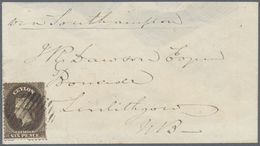 via Southampton
J R Dawson Esqre
Linlithgow
N.B.
CEYLON
SIX PENCE